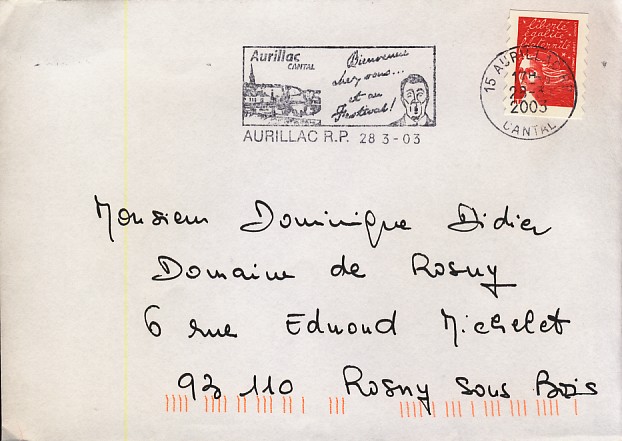 liberté
égalité
fraternité
Aurillac
CANTAL
Bienvenue
chez vous...
et au
Festival!
AURILLAC R.P. 28 3-03
15 AURILLAC
2003
CANTAL
Monsieur Dominique Didier
Domaine de Rosny
6 rue Edmond Michelet
93 110 Rosny sous Bois